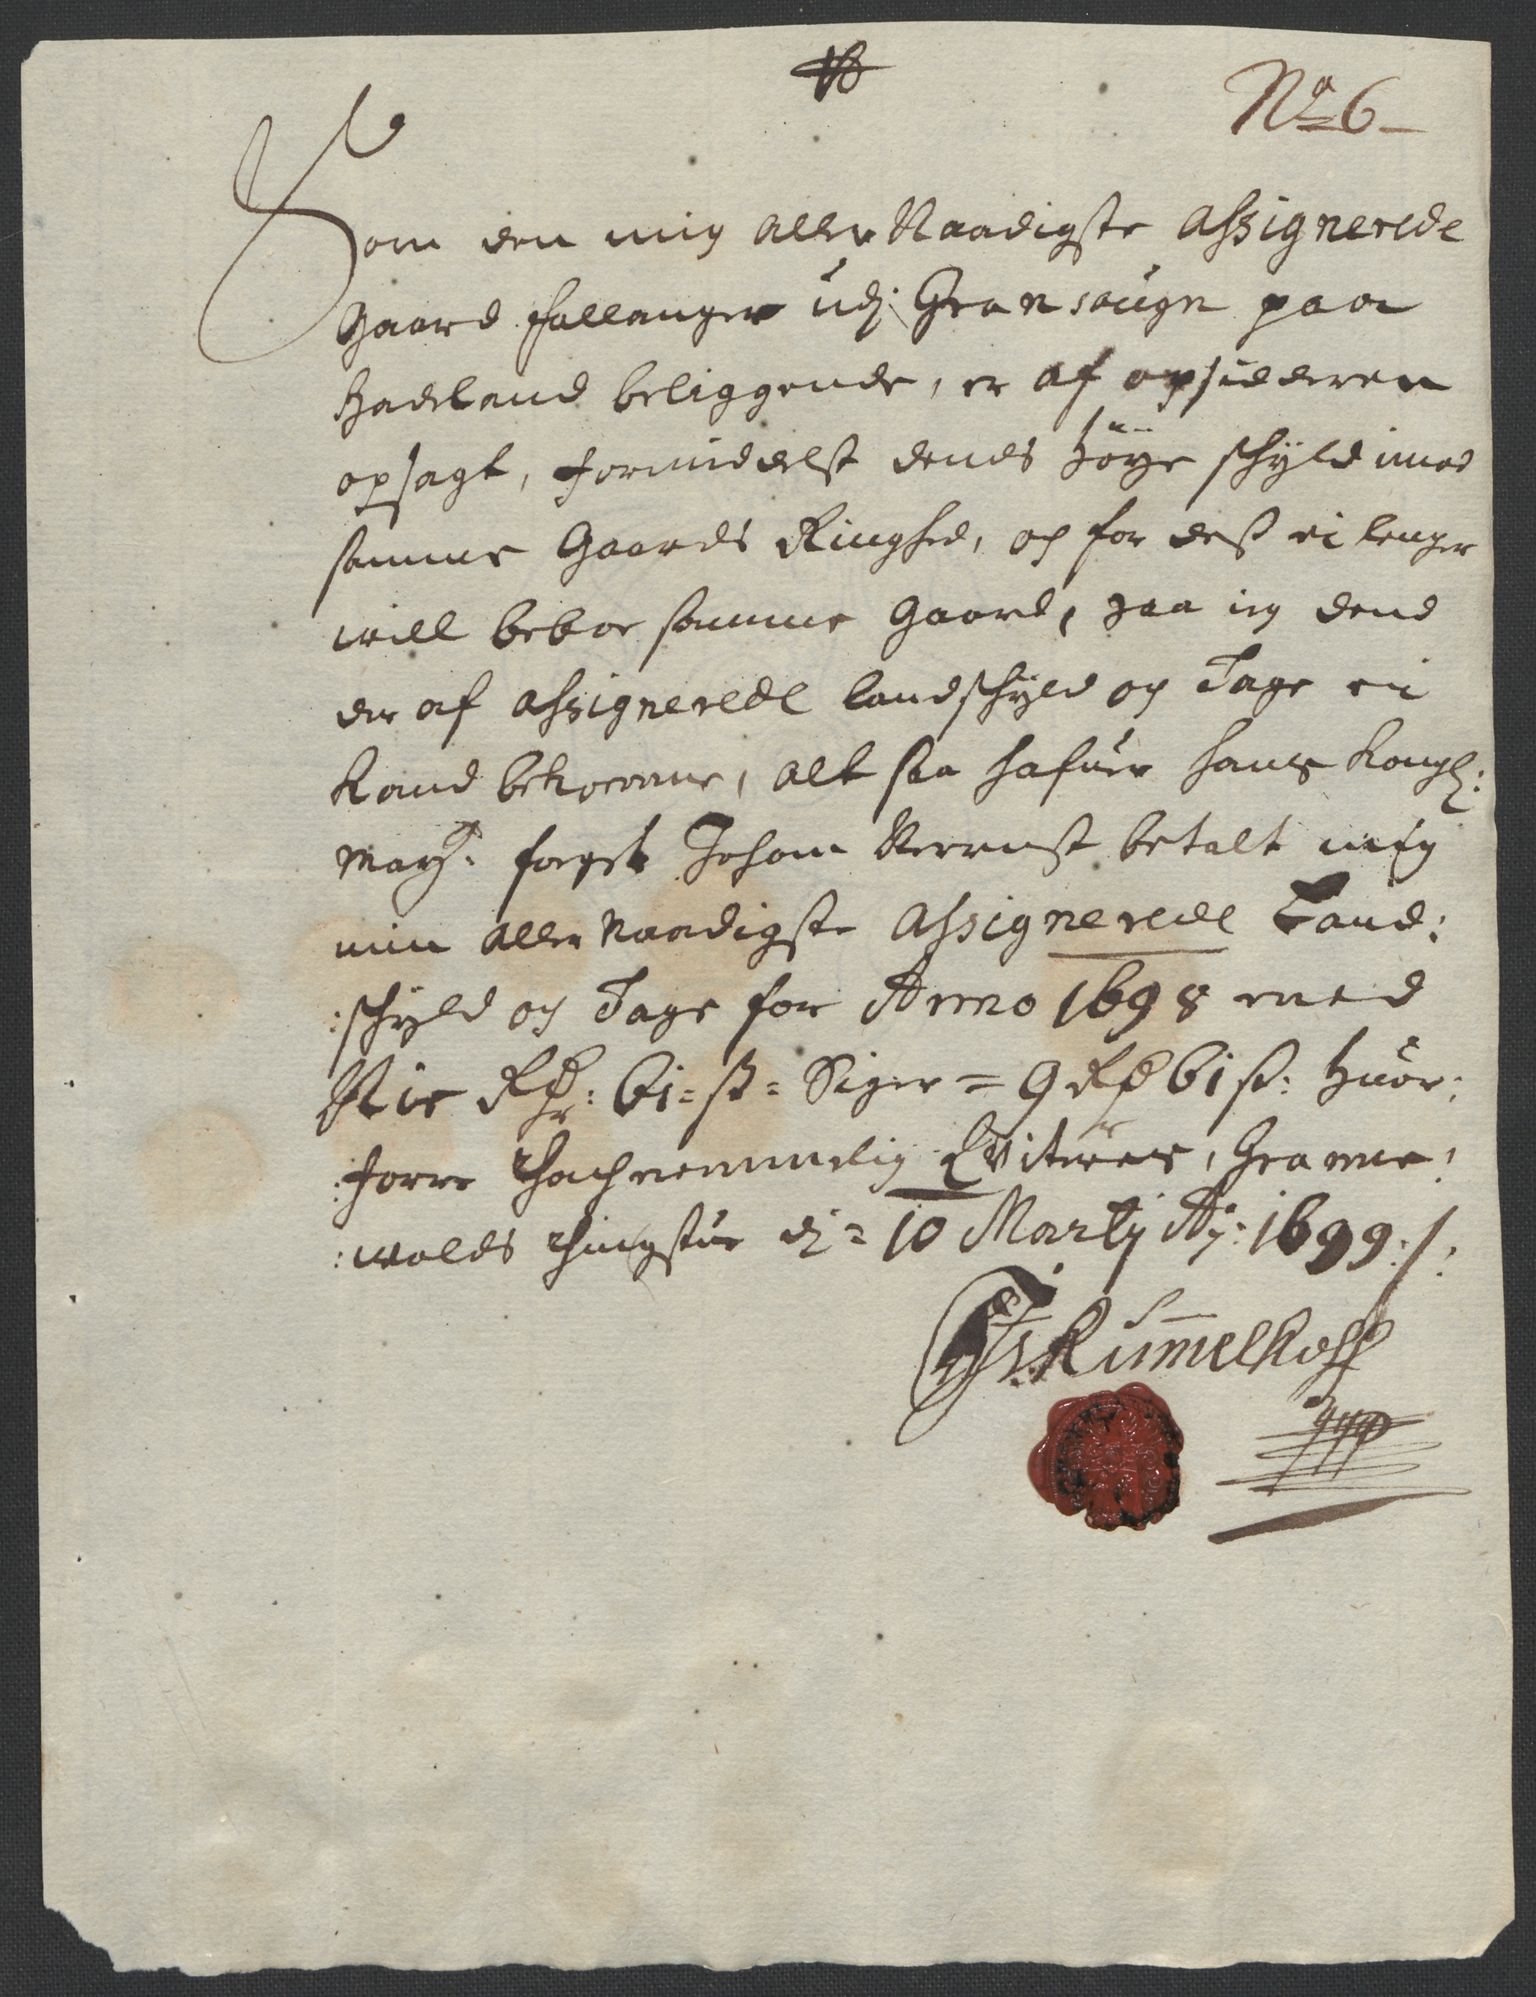 No 6
Som den mig aller Naadigste Assignerede
Gaard Fallanger udj Gran sougn paa
Hadeland beliggende, er af opsidderen
opsagt, formiddelst dends höÿe schÿld imod
samme Gaards Ringhed, og for dess ei lenger
will beboe samme Gaard, saa ieg dend
der af Assignerede landschÿld og Tage ei
Kand bekomme, alt saa hafuer hans Kongl:
Mayts: fogit Johan Neernst betalt mig
min aller Naadigste Assignerede Land:
:schÿld og Tage for Anno 1698 med
Nie Rdr: 61 = ss = Siger = 9 Rd 61 ss: huor:
:forre Tachnemmelig Qviteres, Granne:
:wolds Tingstue dj = 10 Martj Ao: 1699 ./.
Rümmelhoff